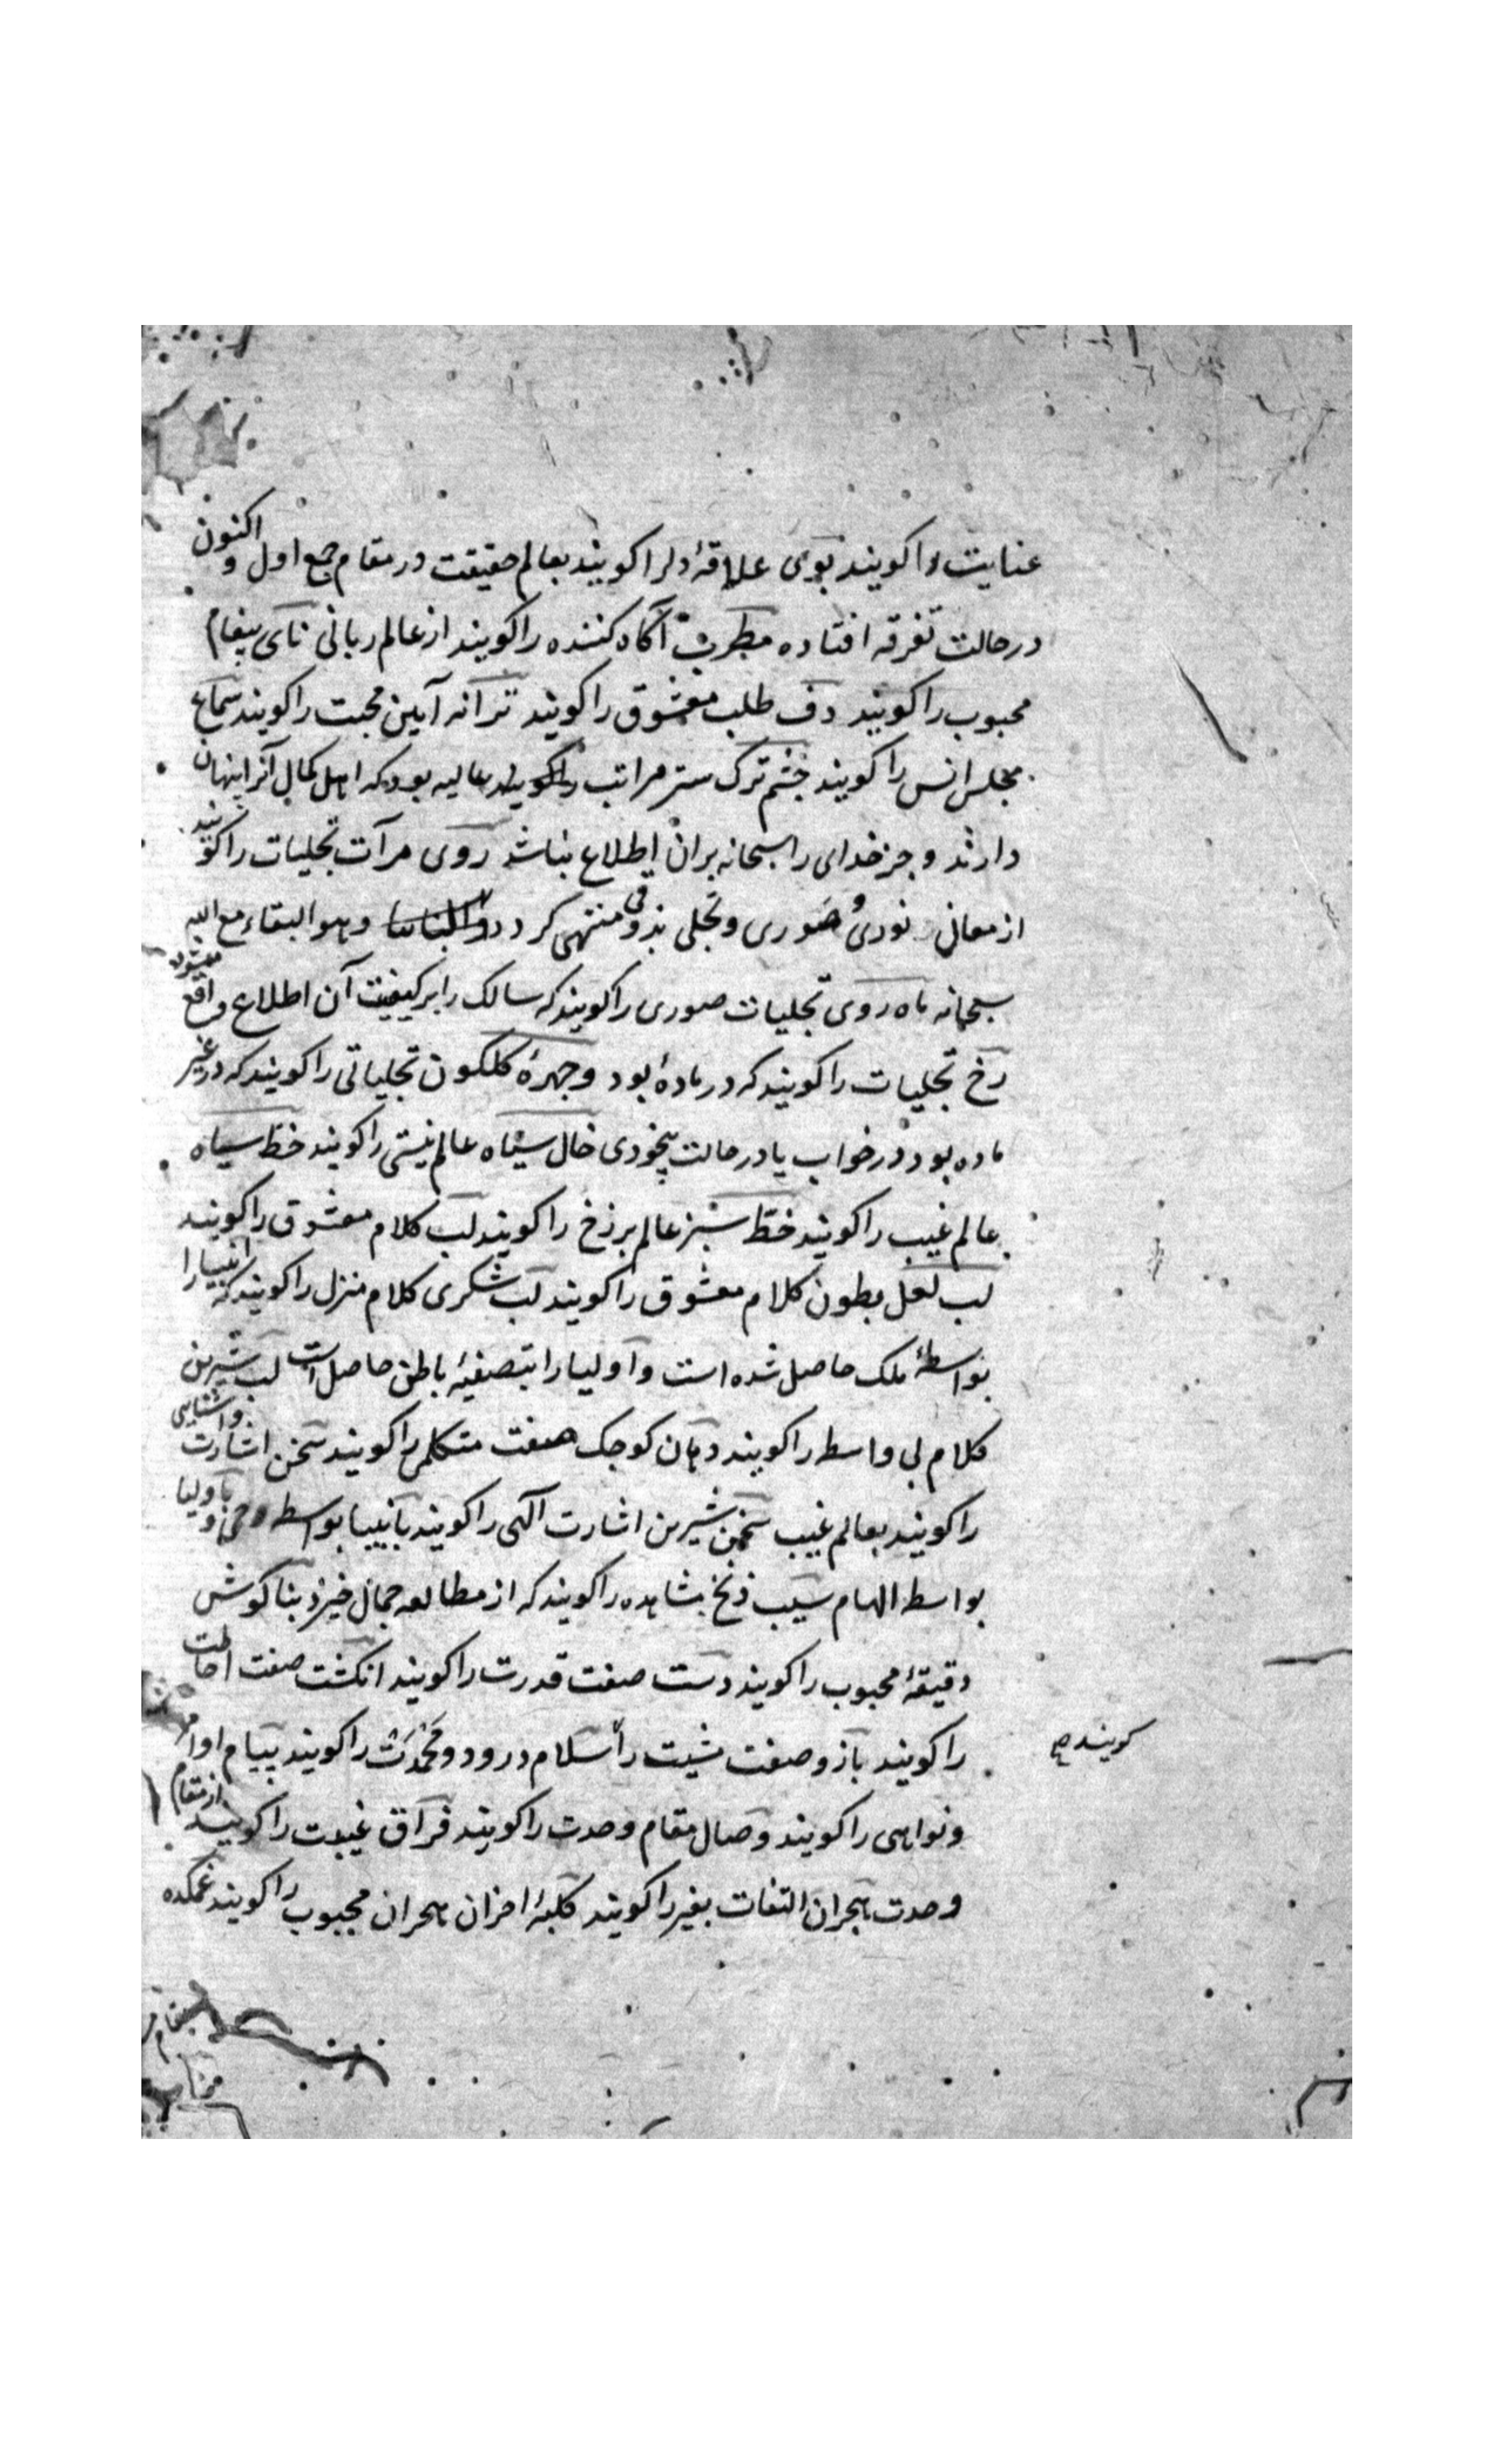 عنایت را کویند بوی علاقهٔ دلرا کویند بعالم حقیقت در مقام جمع اول و اکنون
در حالت تفرقه افتاده مطرب آگاه کننده را کویند از عالم ربانی نای پیغام
محبوب را کویند دف طلب معشوق را کویند ترانه آیین محبت را کویند سماع
مجلس انس را کویند چشم ترک ستر مراتب عالیه بود که اهل کمال آنرا پنهان
دارند و جز خدای را سبحانه بران اطلاع نباشد روی مرآت تجلیات را کویند
از معانی نوری و صوری و تجلی بذوقی منتهی کردد و هو البقاء مع الله
سبحانه ماه روی تجلیات صوری را کویند که سالک را بر کیفیت آن اطلاع واقع میشود
رخ تجلیات را کویند که در مادهٔ بود و چهرهٔ کلکون تجلیاتی را کویند که در غیر
ماده بود در خواب یا در حالت بیخودی خال سیاه عالم نیستی را کویند خط سیاه
عالم غیب را کویند خط سبز عالم برزخ را کویند لب کلام معشوق را کویند
لب لعل بطون کلام معشوق را کویند لب شکری کلام منزل را کویند که انبیا را
بواسطهٔ ملک حاصل شده است و اولیا را بتصفیهٔ باطن حاصل است لب شیرین
کلام بی واسطه را کویند دهان کوچک صفت متکلمی را کویند سخن اشارت و اشنایی
را کویند بعالم غیب سخن شیرین اشارت الهی را کویند بانبیا بواسطه وحی و باولیا
بواسطه الهام سیب زنخ مشاهده را کویند که از مطالعه جمال خیزد بناکوش
دقیقهٔ محبوب را کویند دست صفت قدرت را کویند انکشت صفت احاطت
را کویند بازو صفت مشیت را سلام درود و محمدت را کویند پیام اوامر
کویند صح
و نواهی را کویند وصال مقام وحدت را کویند فراق غیبت را کویند از مقام
وحدت هجران التفات بغیر را کویند کلبهٔ احزان هجران محبوب را کویند غمکده